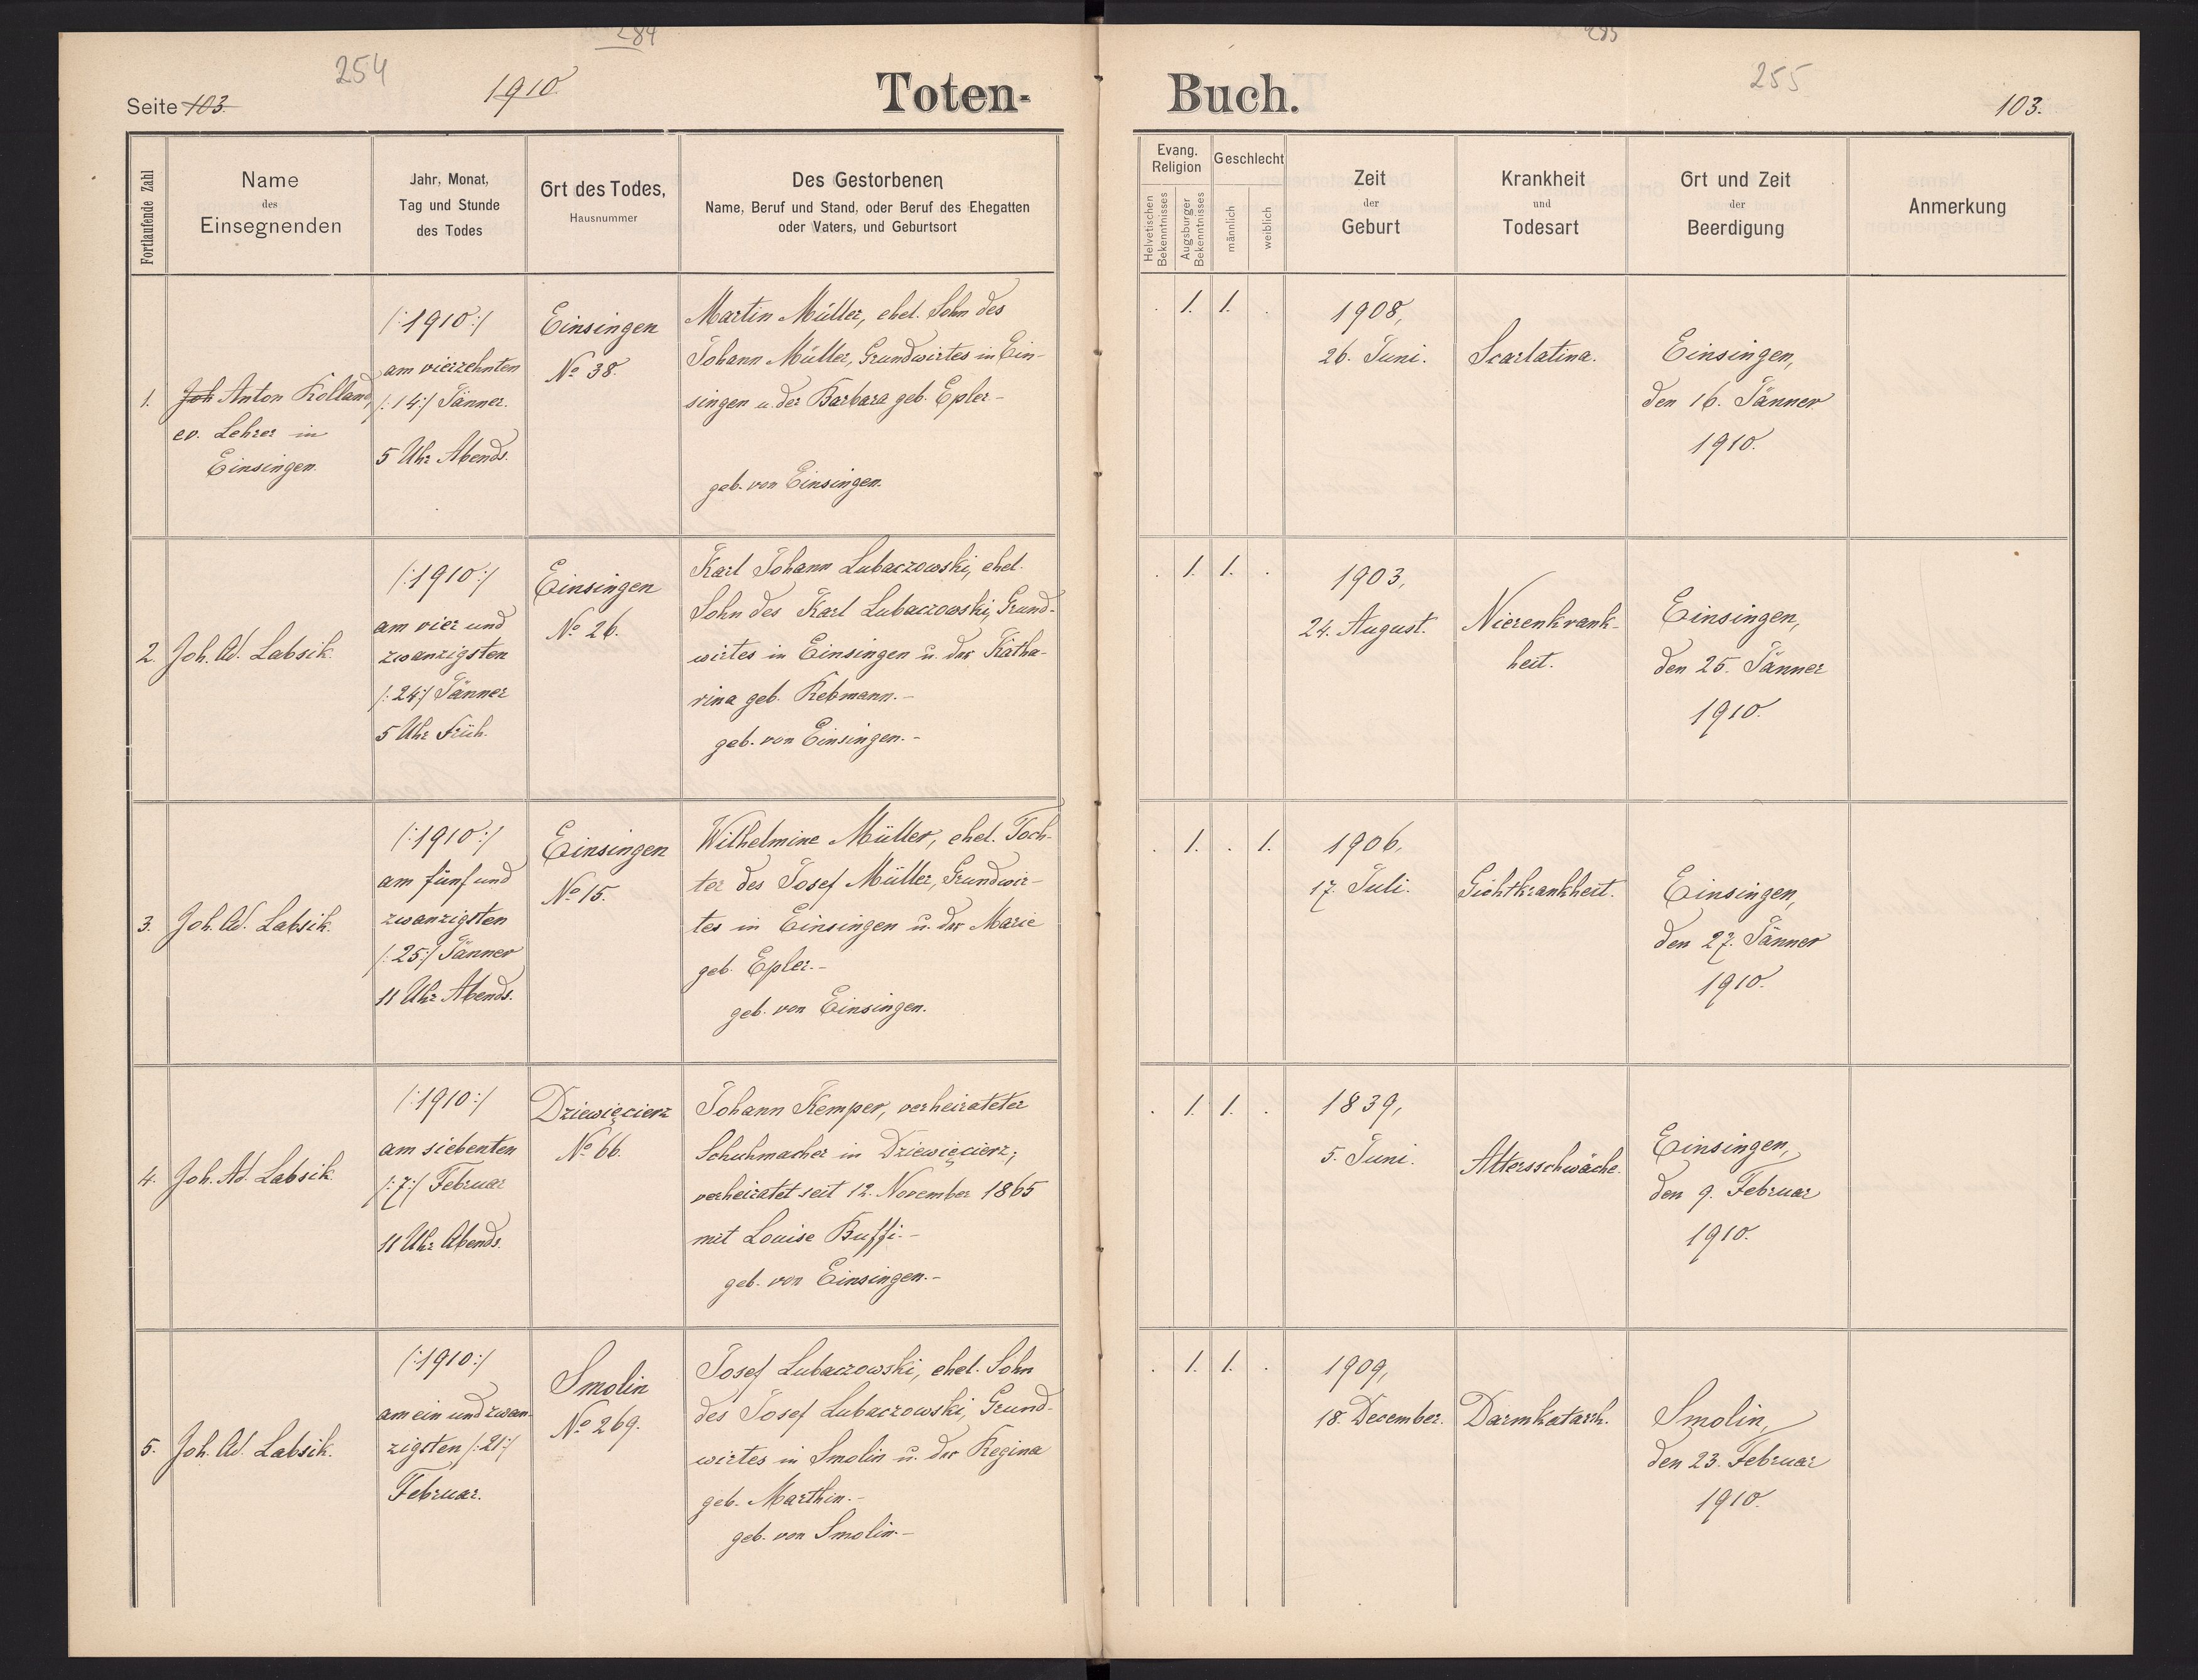 284
285
254
1910
Toten-
Buch.
255
Seite 103.
103.
Fortlaufende Zahl
Name
des
Einsegnenden
Jahr, Monat,
Tag und Stunde
des Todes
Ort des Todes,
Hausnummer
Des Gestorbenen
Name, Beruf und Stand, oder Beruf des Ehegatten
oder Vaters, und Geburtsort
Evang.
Religion
Helvetischen
Bekenntnisses
Augsburger
Bekenntnisses
Geschlecht
männlich
weiblich
Zeit
der
Geburt
Krankheit
und
Todesart
Ort und Zeit
der
Beerdigung
Anmerkung
1.
Joh Anton Kolland,
ev. Lehrer in
Einsingen.
/:1910:/
am vierzehnten
/:14:/ Jänner.
5 Uhr Abends.
Einsingen
No 38.
Martin Müller, ehel. Sohn des
Johann Müller, Grundwirtes in Ein-
singen u. der Barbara geb. Epler-
geb. von Einsingen.
. 1. 1. .
1908,
26. Juni.
Scarlatina.
Einsingen,
den 16. Jänner
1910.
2.
Joh. Ad. Labsik.
/:1910:/
am vier und
zwanzigsten
/:24:/ Jänner
5 Uhr Früh.
Einsingen
No 26.
Karl Johann Lubaczowski, ehel.
Sohn des Karl Lubaczowski, Grund-
wirtes in Einsingen u. der Katha-
rina geb. Rebmann.-
geb. von Einsingen.-
. 1. 1. .
1903,
24. August.
Nierenkrank-
heit.
Einsingen,
den 25. Jänner
1910.
3.
Joh. Ad. Labsik.
/:1910:/
am fünf und
zwanzigsten
/:25:/ Jänner
11 Uhr Abends.
Einsingen
No 15.
Wilhelmine Müller, ehel. Toch-
ter des Josef Müller, Grundwir-
tes in Einsingen u. der Marie
geb. Epler.-
geb. von Einsingen.
. 1. . 1.
1906,
17. Juli.
Gichtkrankheit.
Einsingen,
den 27. Jänner
1910.
4.
Joh. Ad. Labsik.
/:1910:/
am siebenten
/:7:/ Februar
11 Uhr Abends.
Dziewięcierz
No 66.
Johann Kemper, verheirateter
Schuhmacher in Dziewięcierz;
verheiratet seit 12. November 1865
mit Louise Buffi.-
geb. von Einsingen.-
. 1. 1. .
1839,
5. Juni.
Altersschwäche.
Einsingen,
den 9. Februar
1910.
5.
Joh. Ad. Labsik.
/:1910:/
am ein und zwan-
zigsten /:21:/
Februar.
Smolin
No 269.
Josef Lubaczowski, ehel. Sohn
des Josef Lubaczowski, Grund-
wirtes in Smolin u. der Regina
geb. Marthin.-
geb. von Smolin.-
. 1. 1. .
1909,
18. December.
Darmkatarrh.
Smolin,
den 23. Februar
1910.